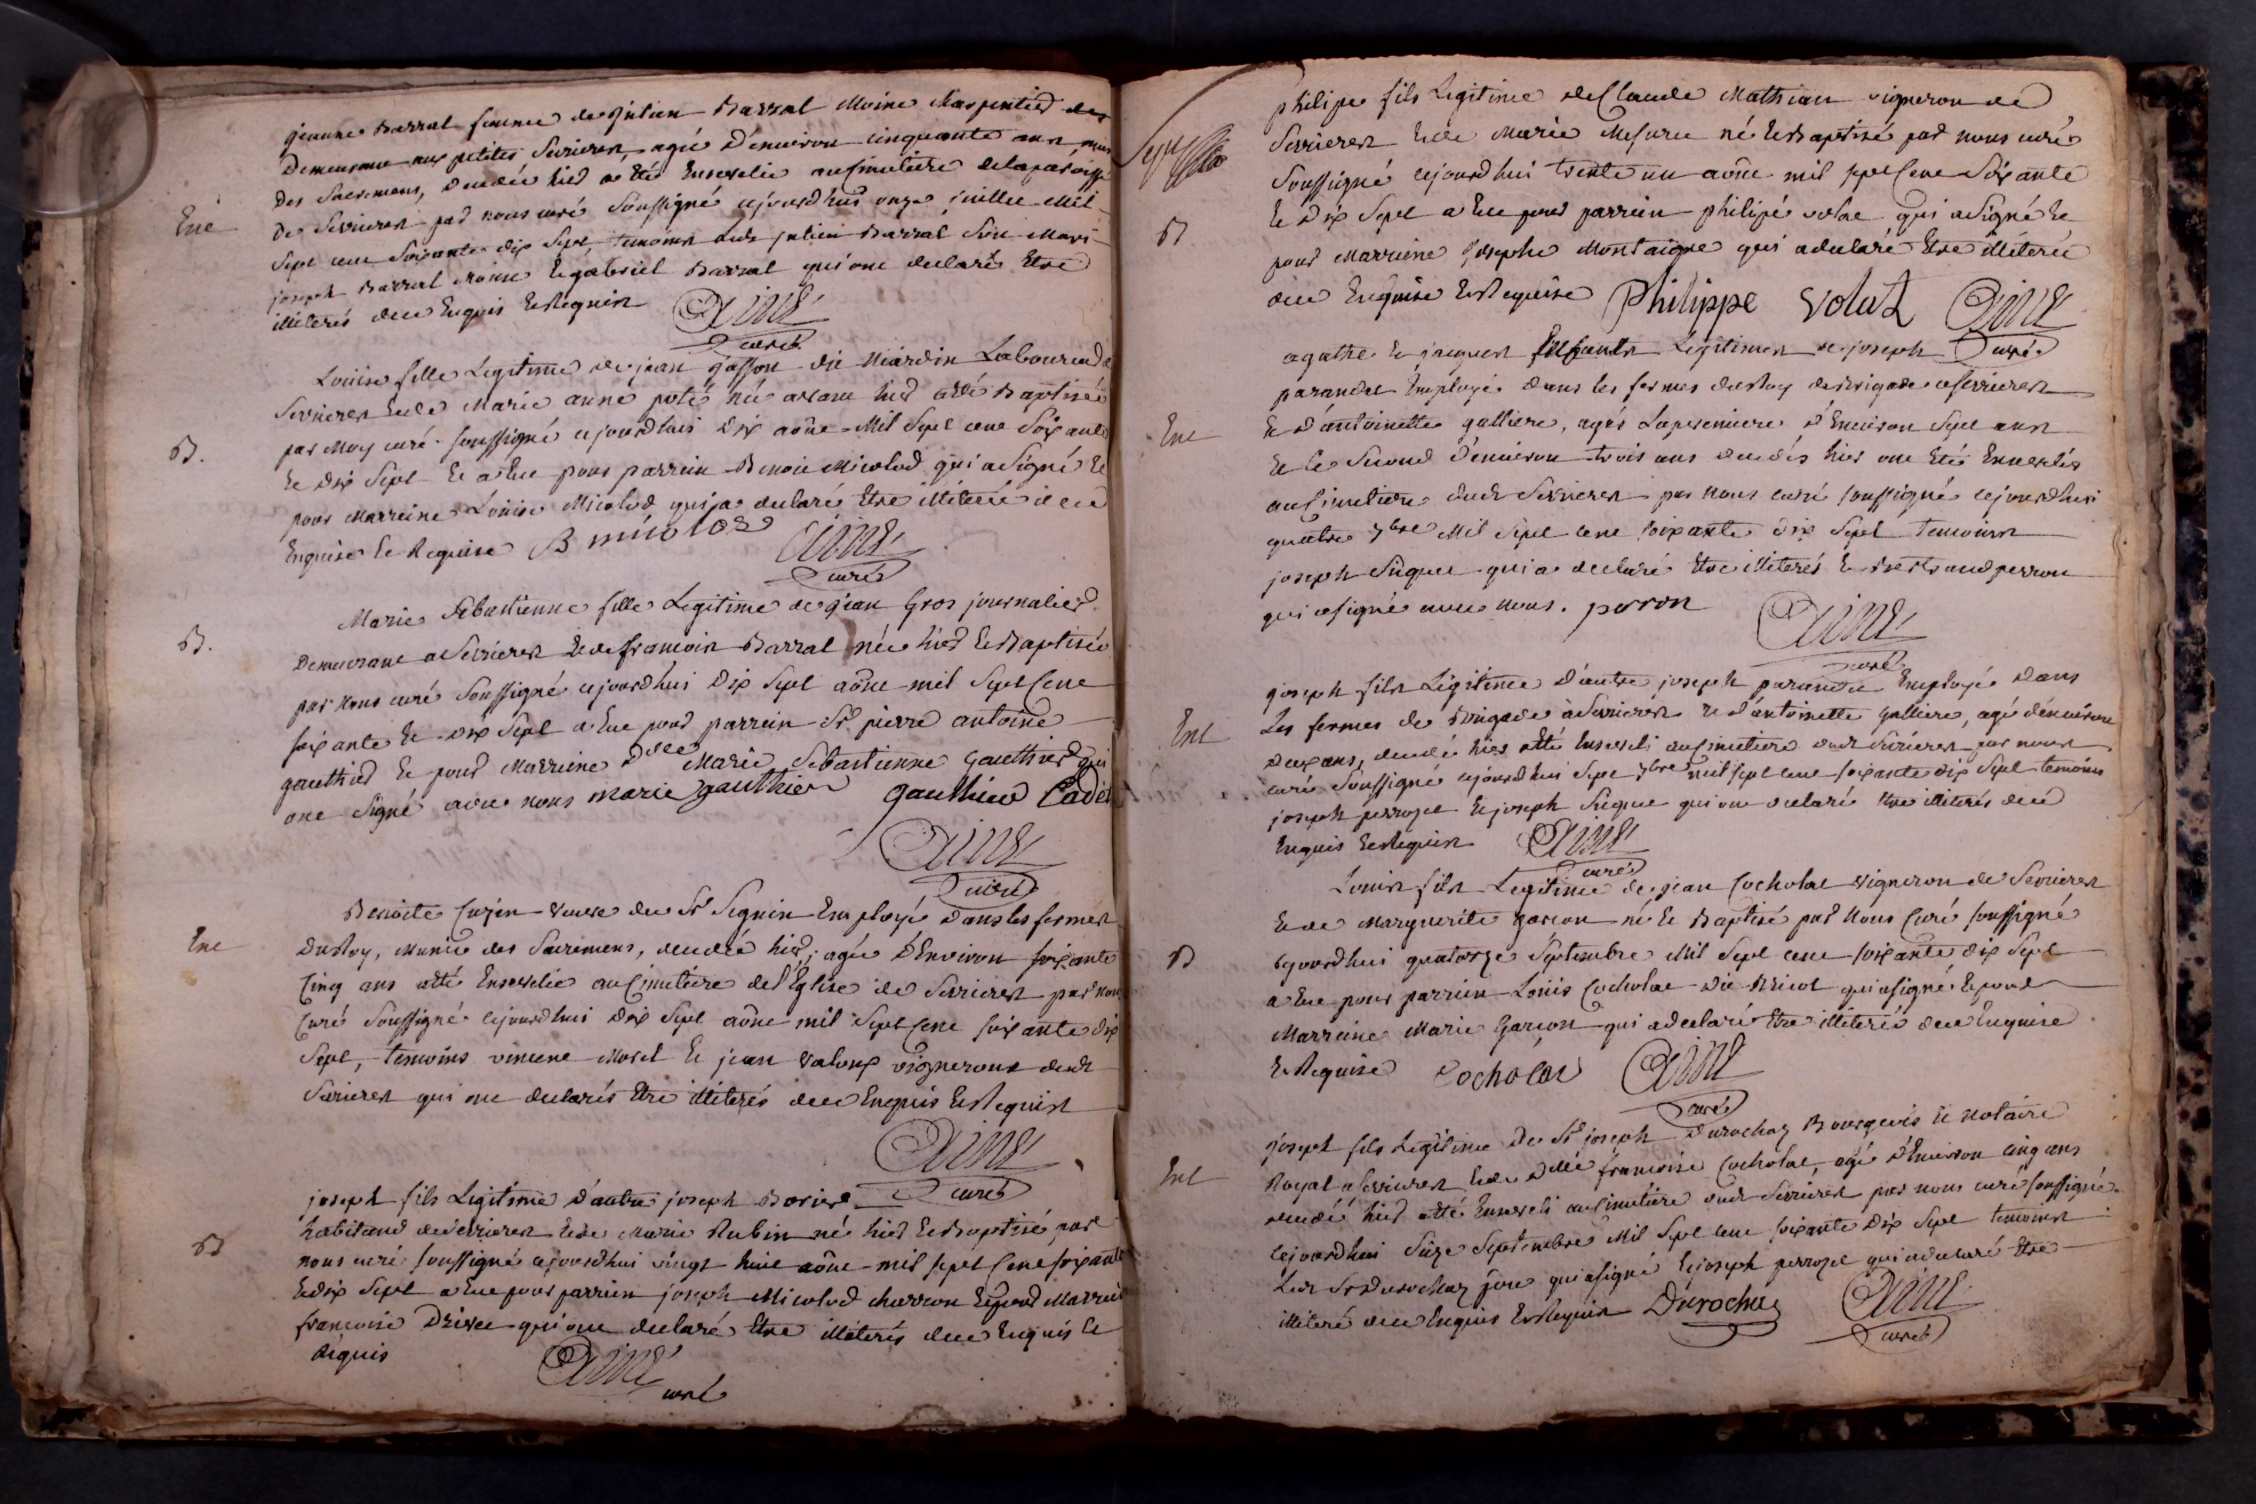 jeanne Barral femme de Julien Barral Moine Charpentier
Demeurant aux petites Serrieres, agée D'environ cinquante ans, munie
Des Sacremens, decedée hier a Eté Ensevelie au Cimetiere de la paroisse
Ent
De Serrieres par nous curé Soussigné cejourdhui onze juillet Mil
Sept cent Soixante dix Sept, temoins julien Barral Son Mari
joseph Barral Moine Et gabriel Barral qui ont declaré Etre
illiterés de ce Enquis Et Requis Aimé
curé
Louise fille Legitime de jean gasson dit Mardin Laboureur
Serrieres Et de Marie anne poté né avant hier a été Baptisée
B.
par Moy curé soussigné cejourdhui Dix août Mil Sept cent Soixante
Et Dix Sept Et a Eu pour parrein Benoit Micolod qui a Signé Et
pour Marreine Louise Micolod qui a declaré Etre illiterée de ce
Enquise Et Requise B micolod Aimé
curé
Marie Sebastienne fille Legitime de jean Gros journalier
B.
Demeurant a Serrieres Et de francoise Barral née hier Et Baptisée
par Nous curé Soussigné cejourdhui Dix Sept août mil Sept Cent
soixante Et dix Sept a Eu pour parrein Sr pierre antoine
gauthier Et pour Marreine Dlle Marie Sebastienne Gauthier qui
ont Signé avec nous marie gauthier gauthier Cadet
Aimé
curé
Benoite Cuzin veuve de Sr Seguin Employé dans les fermes
Ent
Du Roy, Munie des Sacremens, decedée hier, agée D'Environ soixante
Cinq ans a été Ensevelie au Cimetiere de l'Eglise de Serrieres par nous
Curé Soussigné cejourdhui Dix Sept août mil Sept Cent soixante dix
Sept, temoins vincent Morel Et jean valoux vignerons dudt
Serrieres qui ont declarés Etre illiterés de ce Enquis Et Requis
Aimé
curé
joseph fils Legitime D'autre joseph Boriere
habitant de Serrieres Et de Marie Rubin né hier Et Baptisé par
B
nous curé soussigné cejourdhui vingt huit août mil sept Cent soixante
Et dix Sept a Eu pour parrein joseph Micolod charron Et pour Marreine
francoise qui ont declaré Etre illiterés de ce Enquis Et
Requis Aimé
curé
philipe fils Legitime de Claude Mathian vigneron de
Serrieres Et de Marie Mesure né Et Baptisé par nous curé
Soussigné cejourdhui trente un août mil sept Cent Soixante
B
Et Dix Sept a Eu pour parrein philipe volat qui a Signé Et
pour Marreine Josephe Montaigne qui a declaré Etre illiterée
de ce Enquise Et Requise Philippe volat Aimé
curé
agathe Et jacques Enfants Legitimes de joseph
parandet Employé dans les fermes du Roy de Brigade a Serrieres
Ent
Et D'antoinette galliere, agés La premiere D'Environ Sept ans
Et le Second d'environ trois ans decedés hier ont Eté Ensevelis
au Cimetiere dudt Serrieres par Nous curé soussigné cejourdhui
quatre 7bre Mil Sept Cent soixante dix Sept temoins
joseph Suquet qui a declaré Etre illiterés Et Bertrand perron
qui a signé avec nous. perron Aimé
curé
joseph fils Legitime D'autre joseph parandet Employé dans
Ent
Les fermes de Brigade a Serrieres Et d'antoinette Galliere, agé d'environ
deux ans, decedé hier a été Enseveli au Cimetiere dudt Serrieres par nous
curé Soussigné cejourdhui Sept 7bre mil sept cent soixante dix Sept temoins
joseph perrozet Et joseph Suquet qui ont declaré Etre illiterés de ce
Enquis Et Requis Aimé
curé
Louis fils Legitime de jean Cocholat vigneron de Serrieres
Et de Marguerite garcon né Et Baptisé par Nous Curé soussigné
B
cejourdhui quatorze Septembre Mil Sept cent soixante dix Sept
a Eu pour parrein Louis Cocholat dit Bricot qui a signé Et pour
Marreine Marie Garçon qui a declaré Etre illiterée de ce Enquise
Et Requise cocholat Aimé
curé
joseph fils Legitime De Sr joseph Durochay Bourgeois Et Notaire
Ent
Royal a Serrieres Et de Dlle francoise Cocholat, agé D'Environ cinq ans
decedé hier a été Enseveli au Cimetiere dudt Serrieres par nous curé soussigné
cejourdhui Seize Septembre Mil Sept cent soixante Dix Sept temoins
Ledt Sr Durochay pere qui a signé Et joseph perrozet qui a declaré Etre
illiteré de ce Enquis Et Requis Durochay Aimé
curé